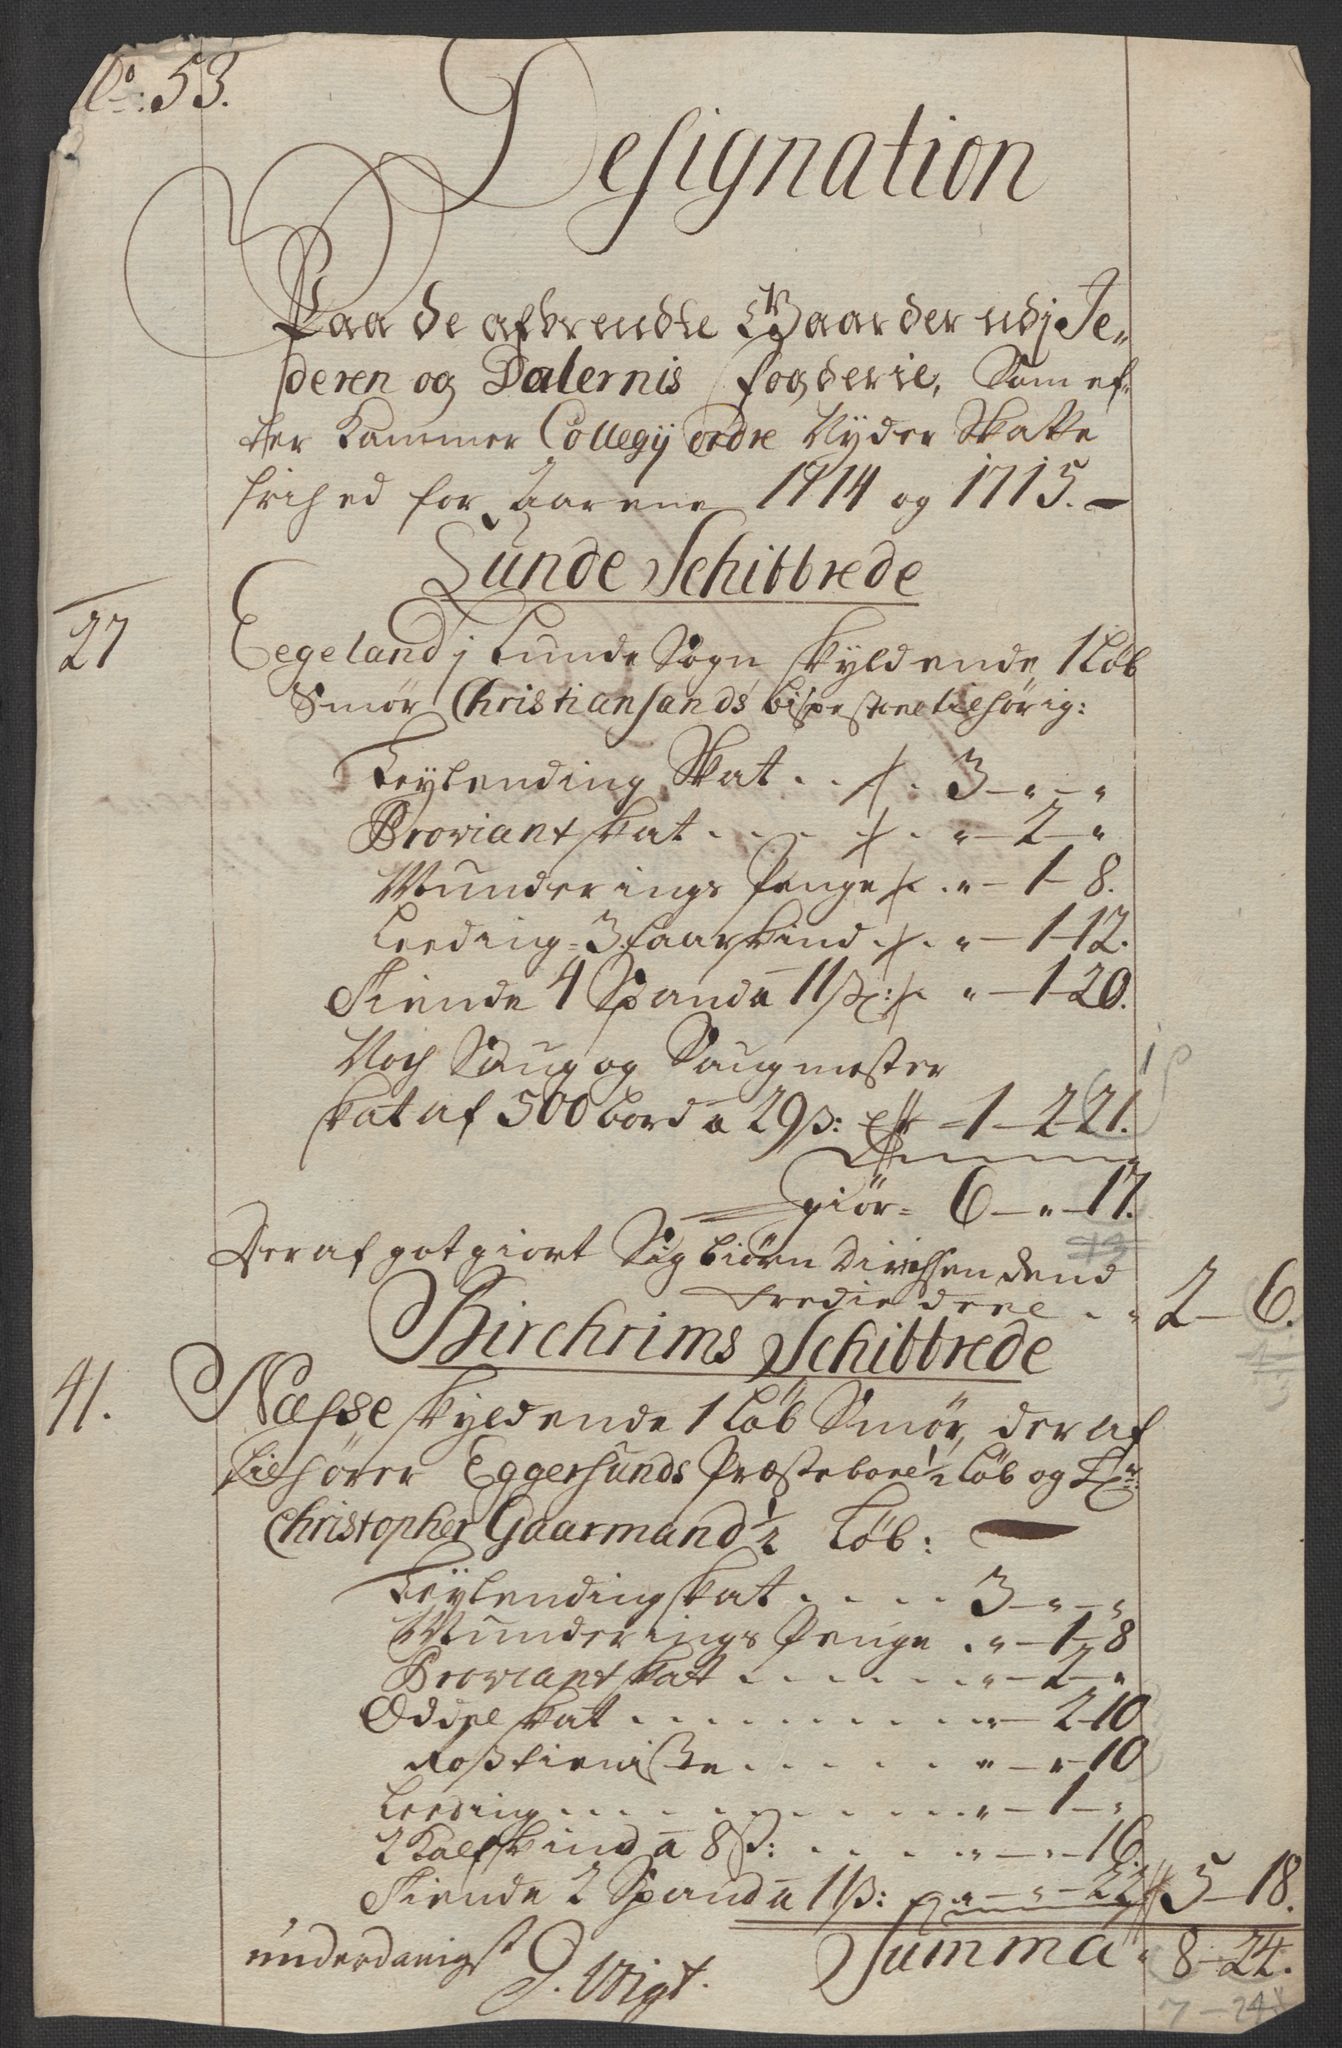 No: 53.
Designation
Paa de afbrendte Gaarder udj Je-
deren og Dalernis fogderie, Som ef-
ter Kammer Collegij ordre Nyder Skatte
frihed for Aarene 1714 og 1715.
Lunde Schibbrede
27 Eegeland j Lunde Sogn skyldende 1 Løb
Smør Christiansands bispestoel tilhørig:
Leylending Skat . . 3 — " — "
Proviant skat . . . . " — 2 — "
Munderings Penge . " — 1 — 8.
Leeding - 3 faarskind . . " — 1 — 12.
Tiende 4 Spand a 11 ß: " — 1 — 20.
Noch Saug og Saugmester
skat af 500 bord a 29 ß: = 1 — 2 — 21.
giør = 6 — " — 17.
13
Deraf gotgiort Sigbiørn Dirchsen dend
tredie deel . . " 2 — 6.
Birchrims Schibbrede
41. Næsse skyldende 1 Løb Smør, deraf
tilhører Eggersunds Præstebord ½ Løb og Hr:
Christopher Gaarmand ½ Løb:
Leylending skat . . . . 3 — " — "
Munderings Penge . " — 1 — 8
Proviant skat . . . . . . " — 2 — "
Oddel skat . . . . . . . . . " — 2 — 10
Roßtieniste . . . . . . " — " — 10
Leeding . . . . . . . . . . " — 1 — "
2 Kalfskind a 8 ß: . . . . " — " — 16.
Tiende 2 Spand a 11 ß: " — " — 22 5 — 18.
Summa " 8 — 24.
underdanigst
P. Voigt.
7 — 24